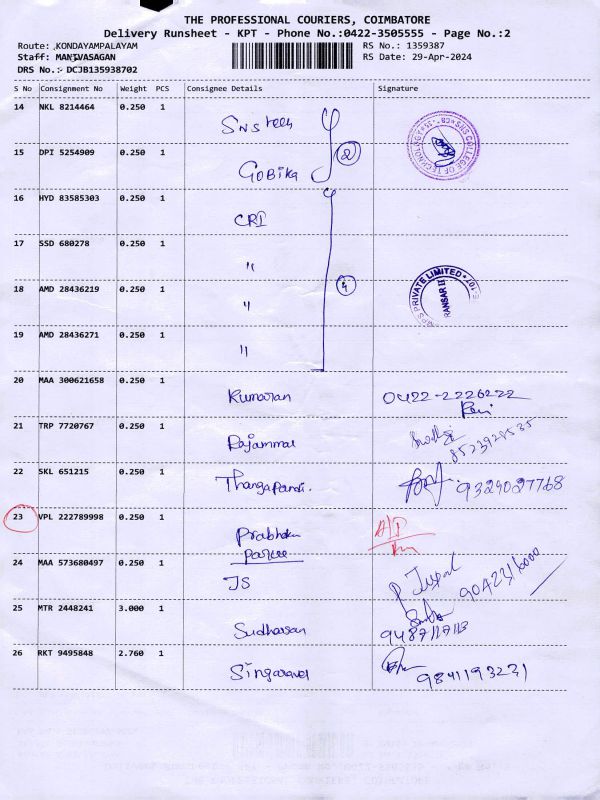 THE PROFESSIONAL COURIERS, COIMBATORE
Delivery Runsheet - KPT - Phone No.:0422-3505555 - Page No.:2
Route: KONDAYAMPALAYAM RS No.: 1359387
Staff: MANIVASAGAN RS Date: 29-Apr-2024
DRS No.: DCJB135938702
S No Consignment No Weight PCS Consignee Details Signature
14 NKL 8214464 0.250 1 SNS Teen
15 DPI 5254909 0.250 1 Gobika 2
SNS COLLEGE OF TECHNOLOGY CB-35
16 HYD 83585303 0.250 1 CRI
17 SSD 680278 0.250 1 "
18 AMD 28436219 0.250 1 " 4
PRIVATE LIMITED
19 AMD 28436271 0.250 1 "
20 MAA 300621658 0.250 1 Kumaran 0422-2226222
21 TRP 7720767 0.250 1 Rajammal 8523928535
22 SKL 651215 0.250 1 Thangapandi. 9324027768
23 VPL 222789998 0.250 1 Prabhaku
24 MAA 573680497 0.250 1 JS 9042316000
25 MTR 2448241 3.000 1 Sudharsan 9487117113
26 RKT 9495848 2.760 1 Singaravel 9841193231